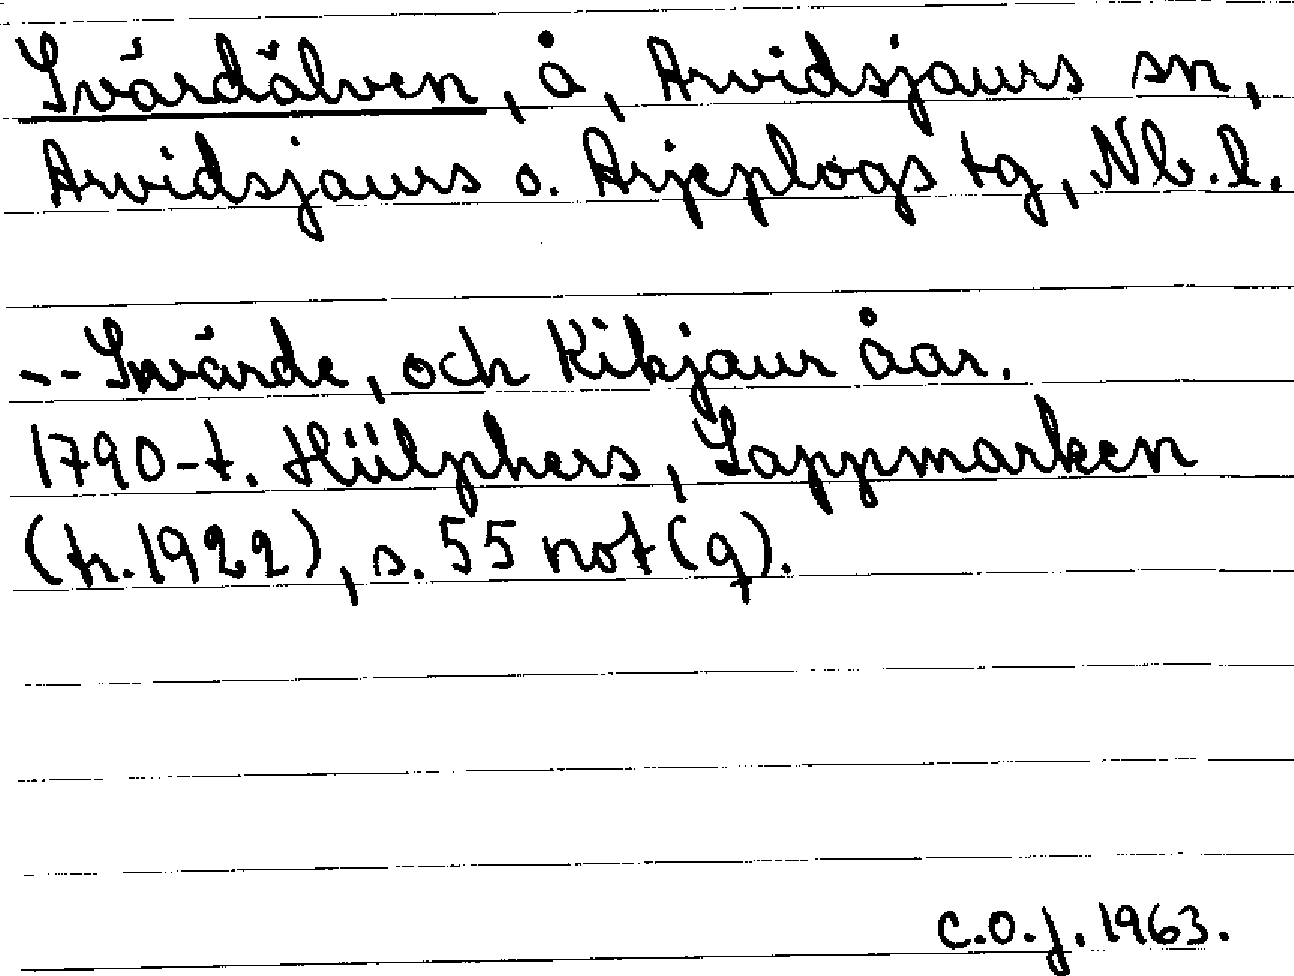 Svärdälven, å, Arvidsjaurs sn,
Arvidsjaurs o. Arjeplogs tg, Nb.l.
-- Swärde, och Kikjaur åar.
1790-t. Hülphers, Lappmarken
(tr. 1922), s. 55 not (q).
C.O.J. 1963.